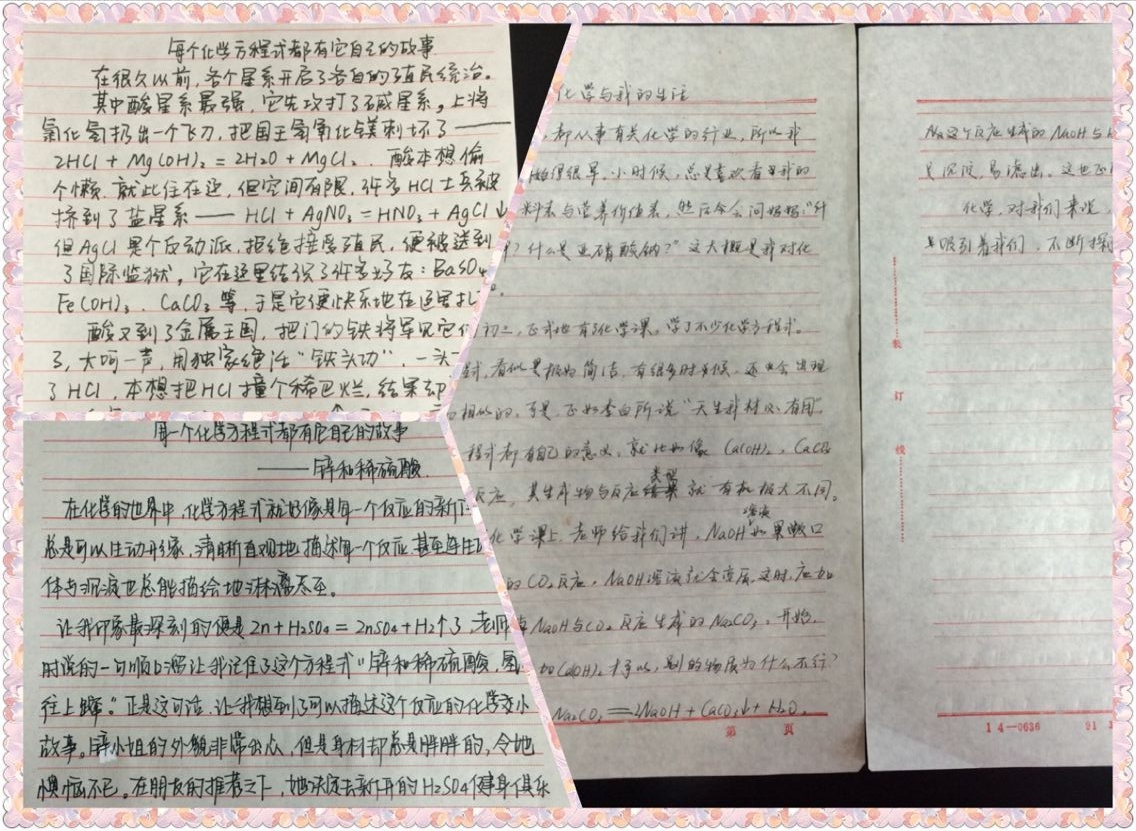 每个化学方程式都有它自己的故事
在很久以前,各个星系开启了各自的殖民统治。
其中酸星系最强,它先攻打了碱星系。上将
氯化氢扔出一个飞刀,把国王氢氧化镁刺坏了——
2HCl + Mg(OH)₂ = 2H₂O + MgCl₂. 酸本想偷
个懒.就此住在这,但空间有限.许多HCl士兵被
挤到了盐星系—— HCl + AgNO₃ = HNO₃ + AgCl↓
但AgCl是个反动派,拒绝接受殖民,便被送到
了国际监狱,它在这里结识了许多好友:BaSO₄
Fe(OH)₃、CaCO₃等,于是它便快乐地在这里扎
酸又到了金属王国,把门的铁将军见它们
了,大呵一声,用独家绝活“铁头功”.一头
了HCl,本想把HCl撞个稀巴烂,结果却
每一个化学方程式都有它自己的故事
——锌和稀硫酸
在化学的世界中,化学方程式就好像是每一个反应的新
总是可以生动形象,清晰直观地描述每一个反应.甚至连生
体与沉淀也总能描绘地淋漓尽至。
让我印象最深刻的便是Zn+H₂SO₄=ZnSO₄+H₂↑了,老师
时说的一句顺口溜让我记住了这个方程式“锌和稀硫酸,氢
往上蹿。”正是这句话,让我想到了可以描述这个反应的化学小
故事。锌小姐的外貌非常出众,但是身材却总是胖胖的,令她
懊恼不已。在朋友的推荐之下,她决定去新开的H₂SO₄健身俱乐
化学与我的生活
都从事有关化学的行业,所以我
始得很早.小时候,总是喜欢看日我的
料表与营养价值表,然后会问妈妈:“什
?什么是亚硝酸钠?”这大概是我对化
初三,正式地有了化学课。学了不少化学方程式。
,看似是极为简洁,有很多时候,还会出现
相似的,可是,正如李白所说“天生我材必有用”
程式都有自己的意义,就比如像 Ca(OH)₂、CaCO₃
反应,其生成物与反应类型就有极大不同。
化学课上.老师给我们讲,NaOH溶液如果敞口
的CO₂反应,NaOH溶液就会变质.这时,应加
NaOH与CO₂反应生成的Na₂CO₃,开始,
加Ca(OH)₂才可以,别的物质为什么不行?
Na₂CO₃ == 2NaOH + CaCO₃↓ + H₂O.
第 页
这个反应生成的NaOH与
沉淀,易滤出。这也正
化学,对我们来说,
吸引着我们,不断探
装
订
线
14—0636